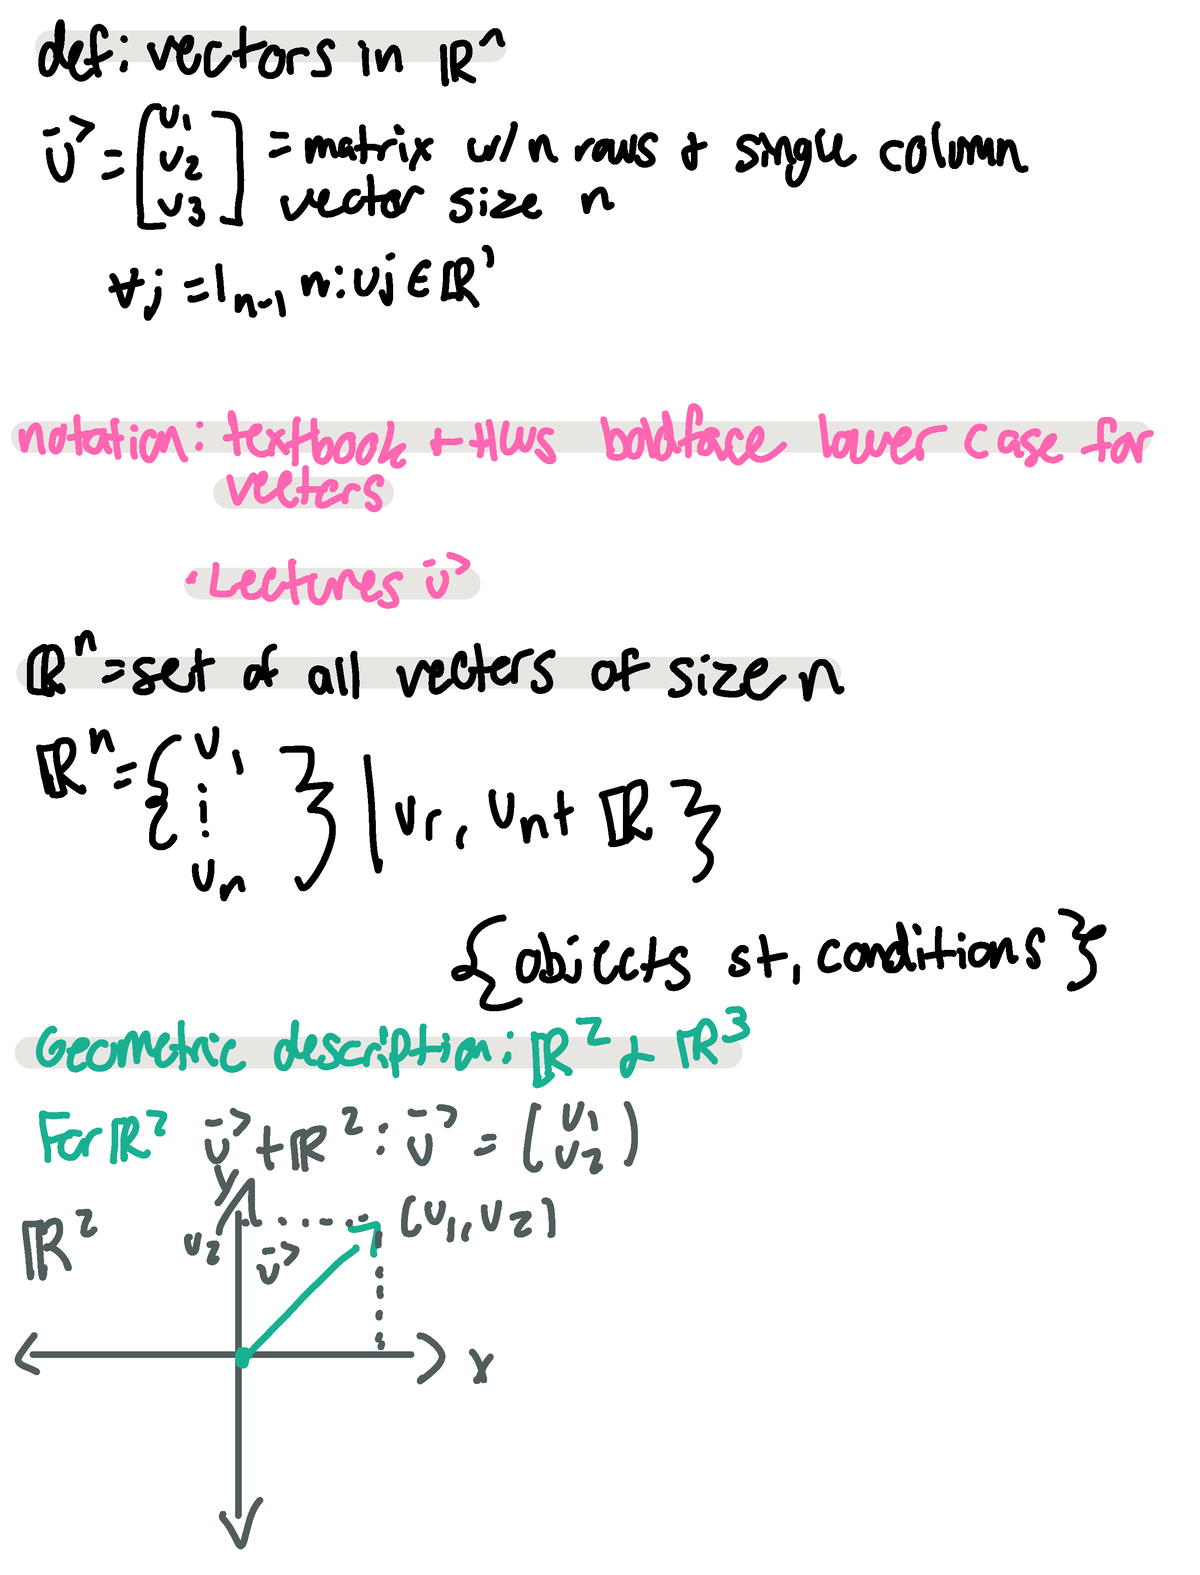 def: vectors in ℝⁿ
v⃗ = [v₁ v₂ v₃] = matrix w/ n rows & single column
vector size n
∀j = 1ₙ₋₁ n: vj ∈ ℝ'
notation: textbook + HWs boldface lower case for
vectors
• Lectures v⃗
ℝⁿ = set of all vectors of size n
ℝⁿ = { v₁ ⋮ vₙ } | vr, vn+ ℝ }
{objects st, conditions}
Geometric description: ℝ² & ℝ³
For ℝ² v⃗ + ℝ²: v⃗ = (v₁ v₂)
y
ℝ² v₂ v⃗ (v₁, v₂)
x